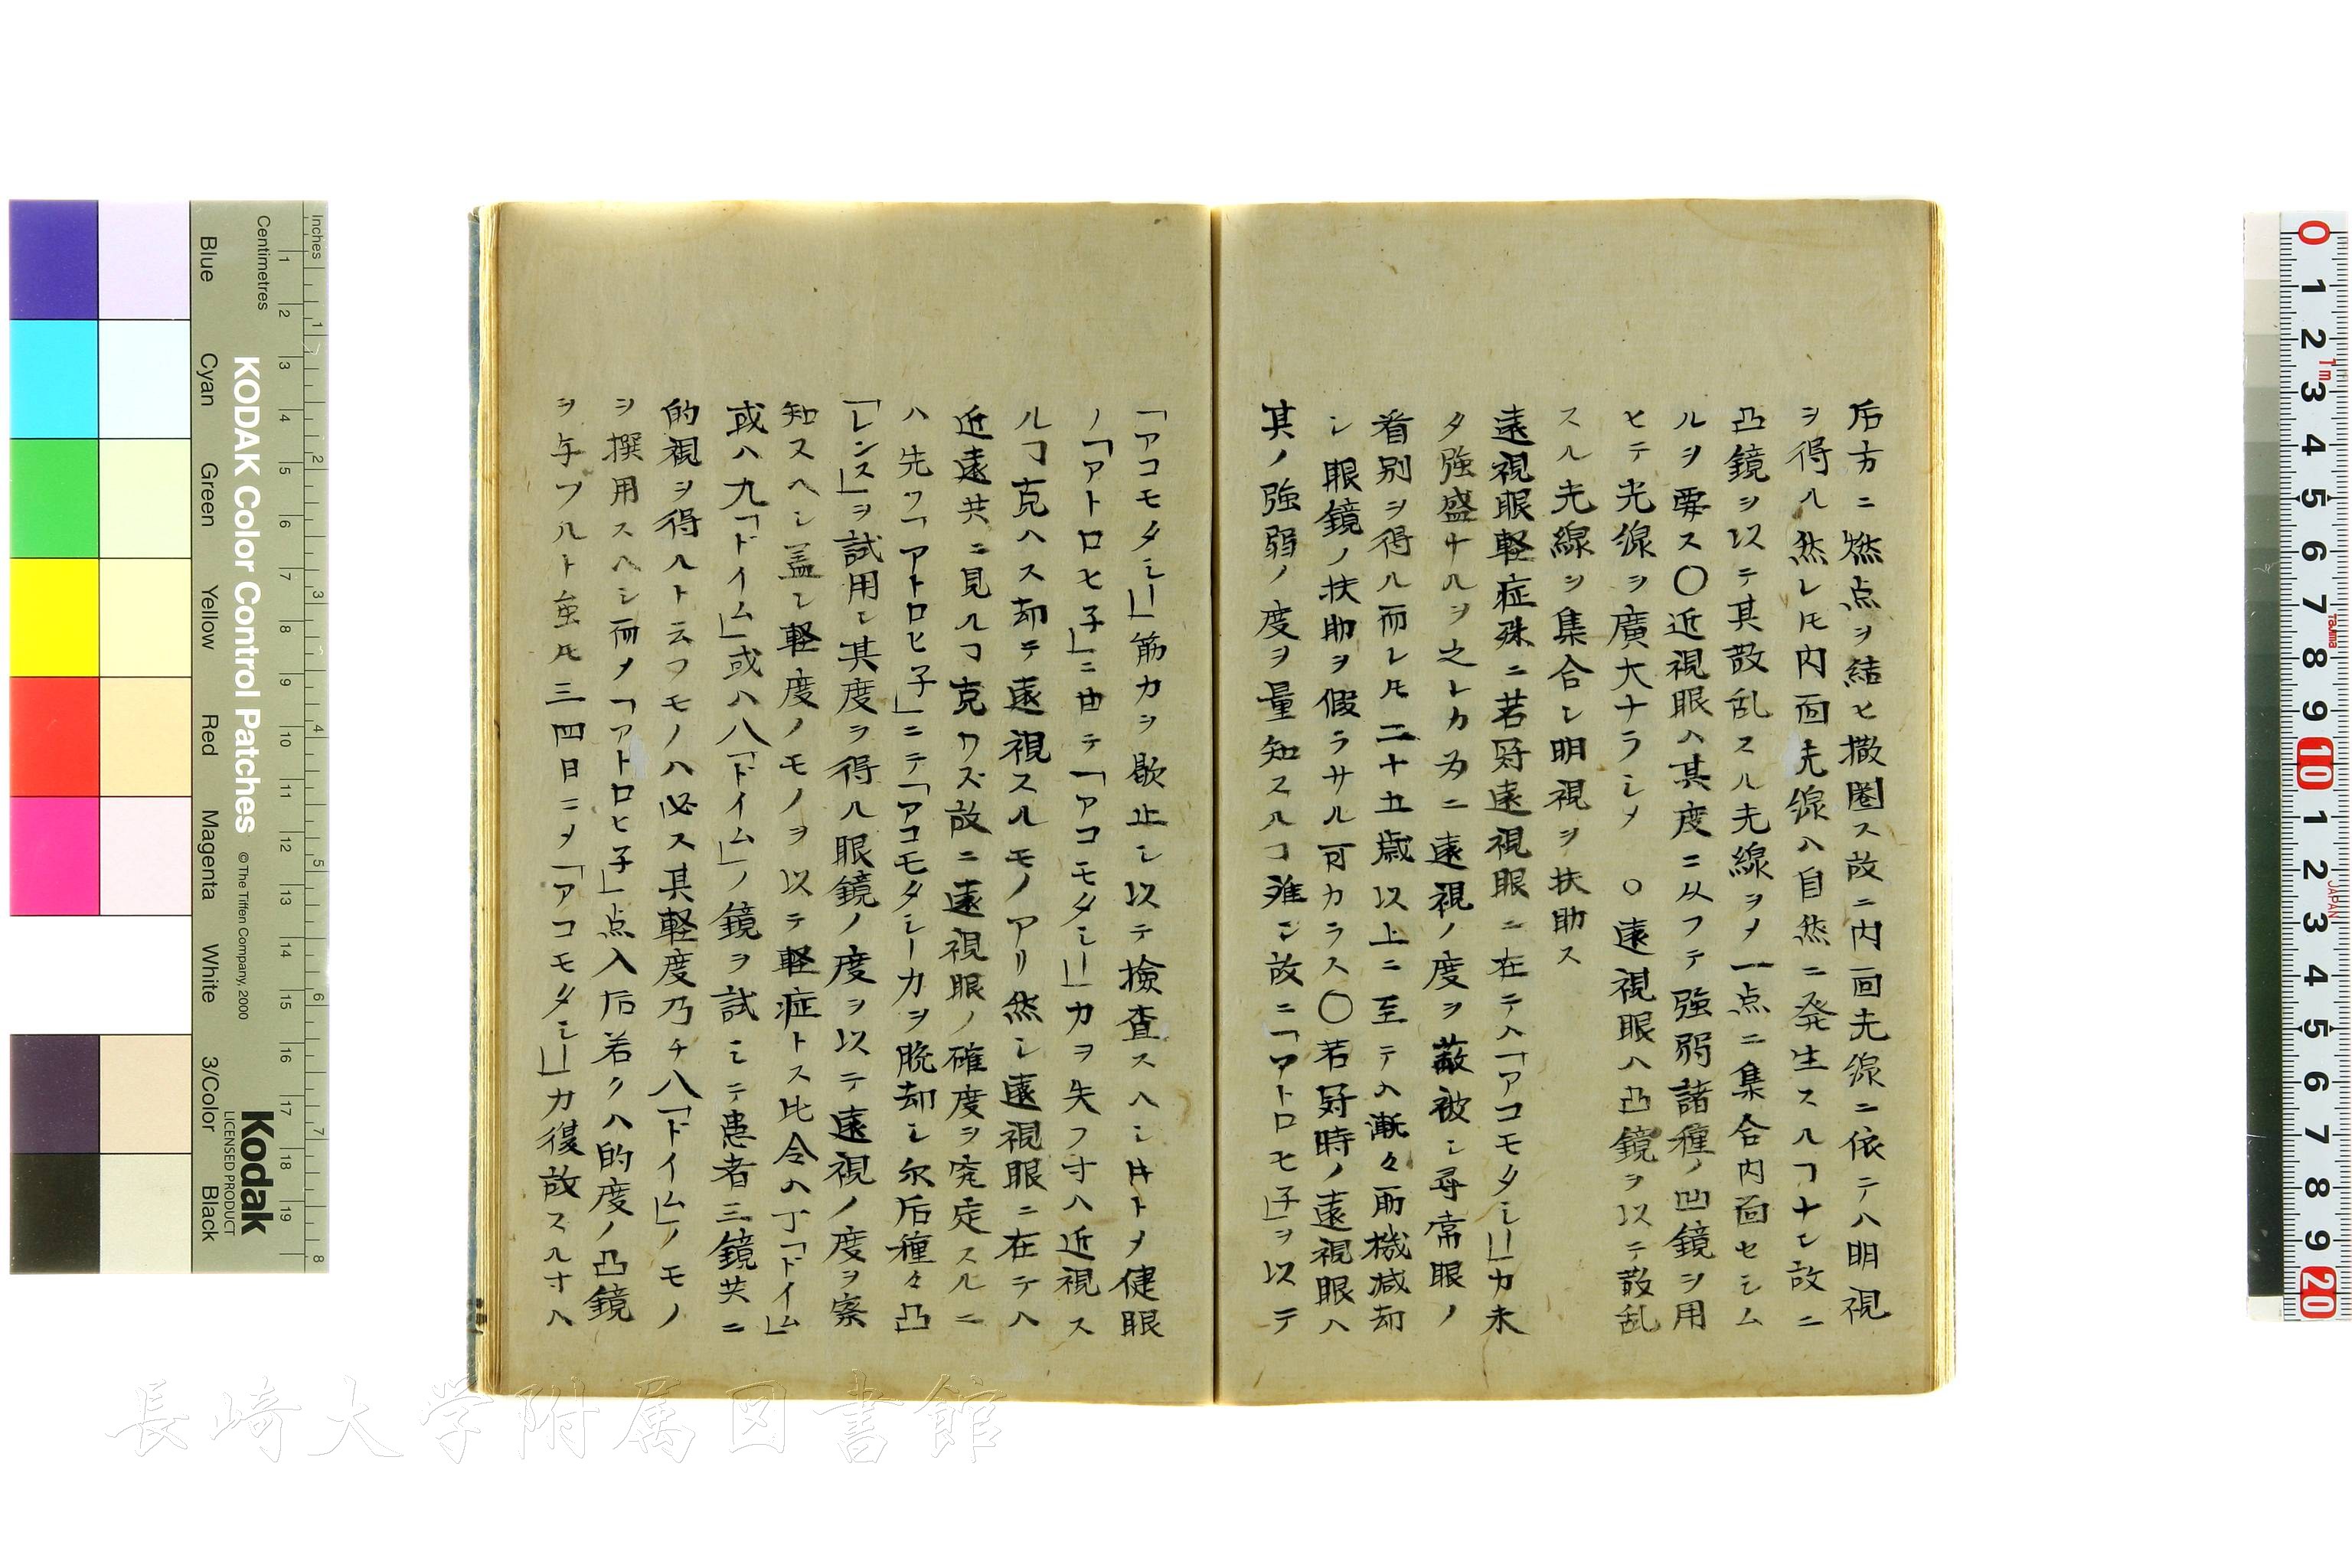 后方ニ燃点ヲ結ヒ撒圏ス故ニ内面光線ニ依テハ明視
ヲ得ル然レ𪜈内面光線ハ自然ニ発生スルヿナシ故ニ
凸鏡ヲ以テ其散乱スル光線ヲメ一点ニ集合内面セシム
ルヲ要ス〇近視眼ハ其度ニ从フテ強弱諸種ノ凹鏡ヲ用
ヒテ光線ヲ廣大ナラシメ 〇遠視眼ハ凸鏡ヲ以テ散乱
スル光線ヲ集合シ明視ヲ扶助ス
遠視眼軽症殊ニ若好遠視眼ニ在テハ「アコモタシー」力未
タ強盛ナルヲ之レカ為ニ遠視ノ度ヲ蔽被シ尋常眼ノ
看別ヲ得ル而レ𪜈二十五歳以上ニ至テハ漸々筋機減却
シ眼鏡ノ扶助ヲ假ラサル可カラス〇若好時ノ遠視眼ハ
其ノ強弱ノ度ヲ量知スルヿ難シ故ニ「アトロヒ子」ヲ以テ
「アコモタシー」筋力ヲ歇止シ以テ撿査スヘシ🈩トメ健眼
ノ「アトロヒ子」ニ由テ「アコモタシー」力ヲ失フ寸ハ近視ス
ルヿ克ハス却テ遠視スルモノアリ然シ遠視眼ニ在テハ
近遠共ニ見ルヿ克ワズ故ニ遠視眼ノ確度ヲ究定スルニ
ハ先ツ「アトロヒ子」ニテ「アコモタシー力ヲ脱却シ尔后種々凸
「レンス」ヲ試用シ其度ヲ得ル眼鏡ノ度ヲ以テ遠視ノ度ヲ察
知スヘシ蓋シ軽度ノモノヲ以テ軽症トス比令ハ丁「ドイム」
或ハ九「ドイム」或ハ八「ドイム」ノ鏡ヲ試ミテ患者三鏡共ニ
的視ヲ得ルト云フモノハ必ス其軽度乃チ八「ドイム」ノモノ
ヲ撰用スヘシ而メ「アトロヒ子」点入后若クハ的度ノ凸鏡
ヲ与フルト虽𪜈三四日ニメ「アコモタシー」力復故スル寸ハ
Inches
Centimetres
Blue
Cyan
Green
Yellow
Red
Magenta
White
3/Color
Black
KODAK Color Control Patches
© The Tiffen Company, 2000
Kodak
LICENSED PRODUCT
長崎大学附属図書館